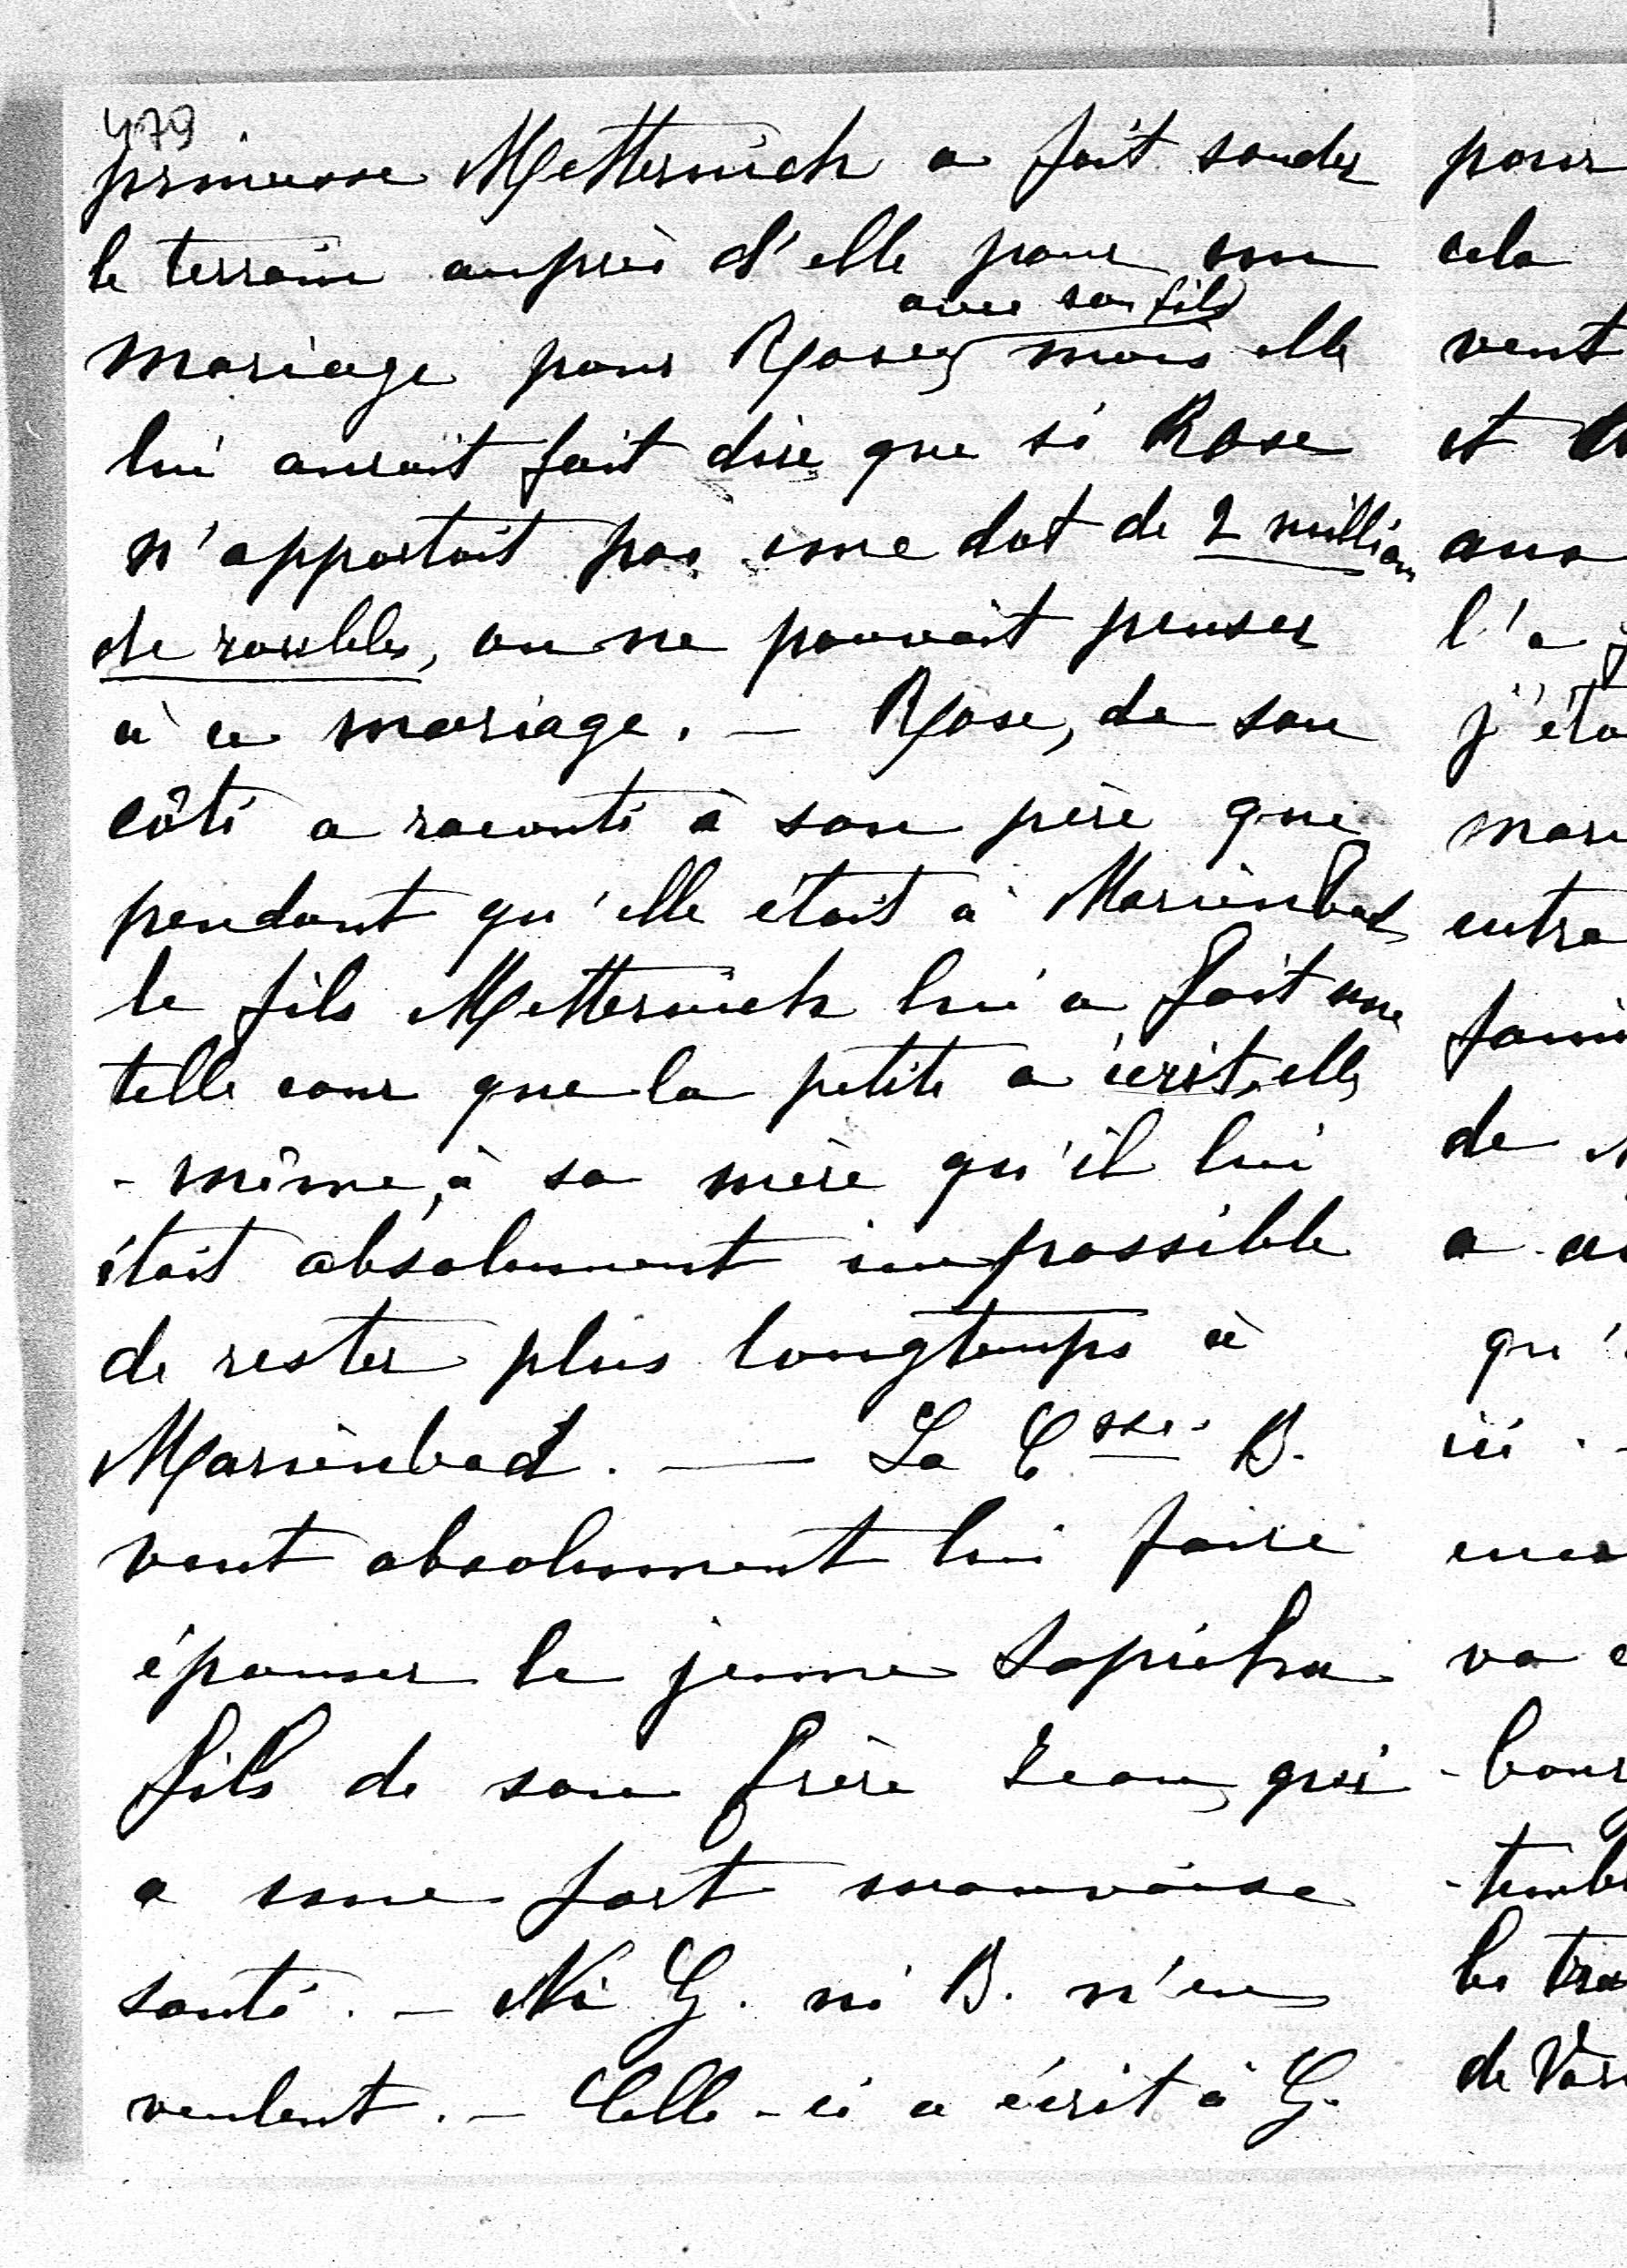 479
princesse Metternich a fait sonder
le terrain auprès d'elle pour un
avec son fils
mariage pour Rose, mais elle
lui aurait fait dire que si Rose
n'apportait pas une dot de 2 millions
de roubles, on ne pouvait penser
à ce mariage. – Rose, de son
côté a raconté à son père que
pendant qu'elle était à Marienbad
le fils Metternich lui a fait une
telle cour que la petite a écrit, elle
-même, à sa mère qu'il lui
était absolument impossible
de rester plus longtemps à
Marienbad. — La Csse. B.
veut absolument lui faire
épouser le jeune Sapieha
fils de son frère Jean, qui
a une fort mauvaise
santé. – Ni G. ni B. n'en
veulent. – Celle-ci a écrit à G.
pour
cela
veut
et
l'a
j'éta
mari
entre
de
a
qu'
ici . –
va
-bour
-temb
le tra
de Vars